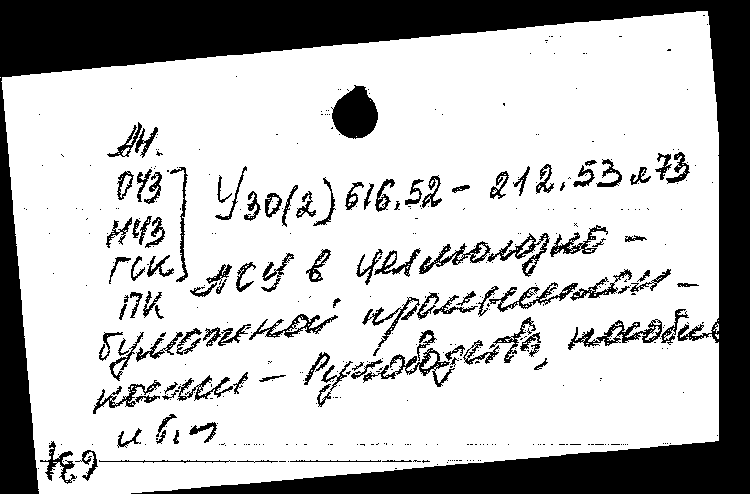 АН.
ОЧЗ
НЧЗ
ГСК
ПК
У30(2)616.52 - 212.53 я73
АСУ в целлюлозно-
бумажной промышлен-
ности - Руководства, пособия